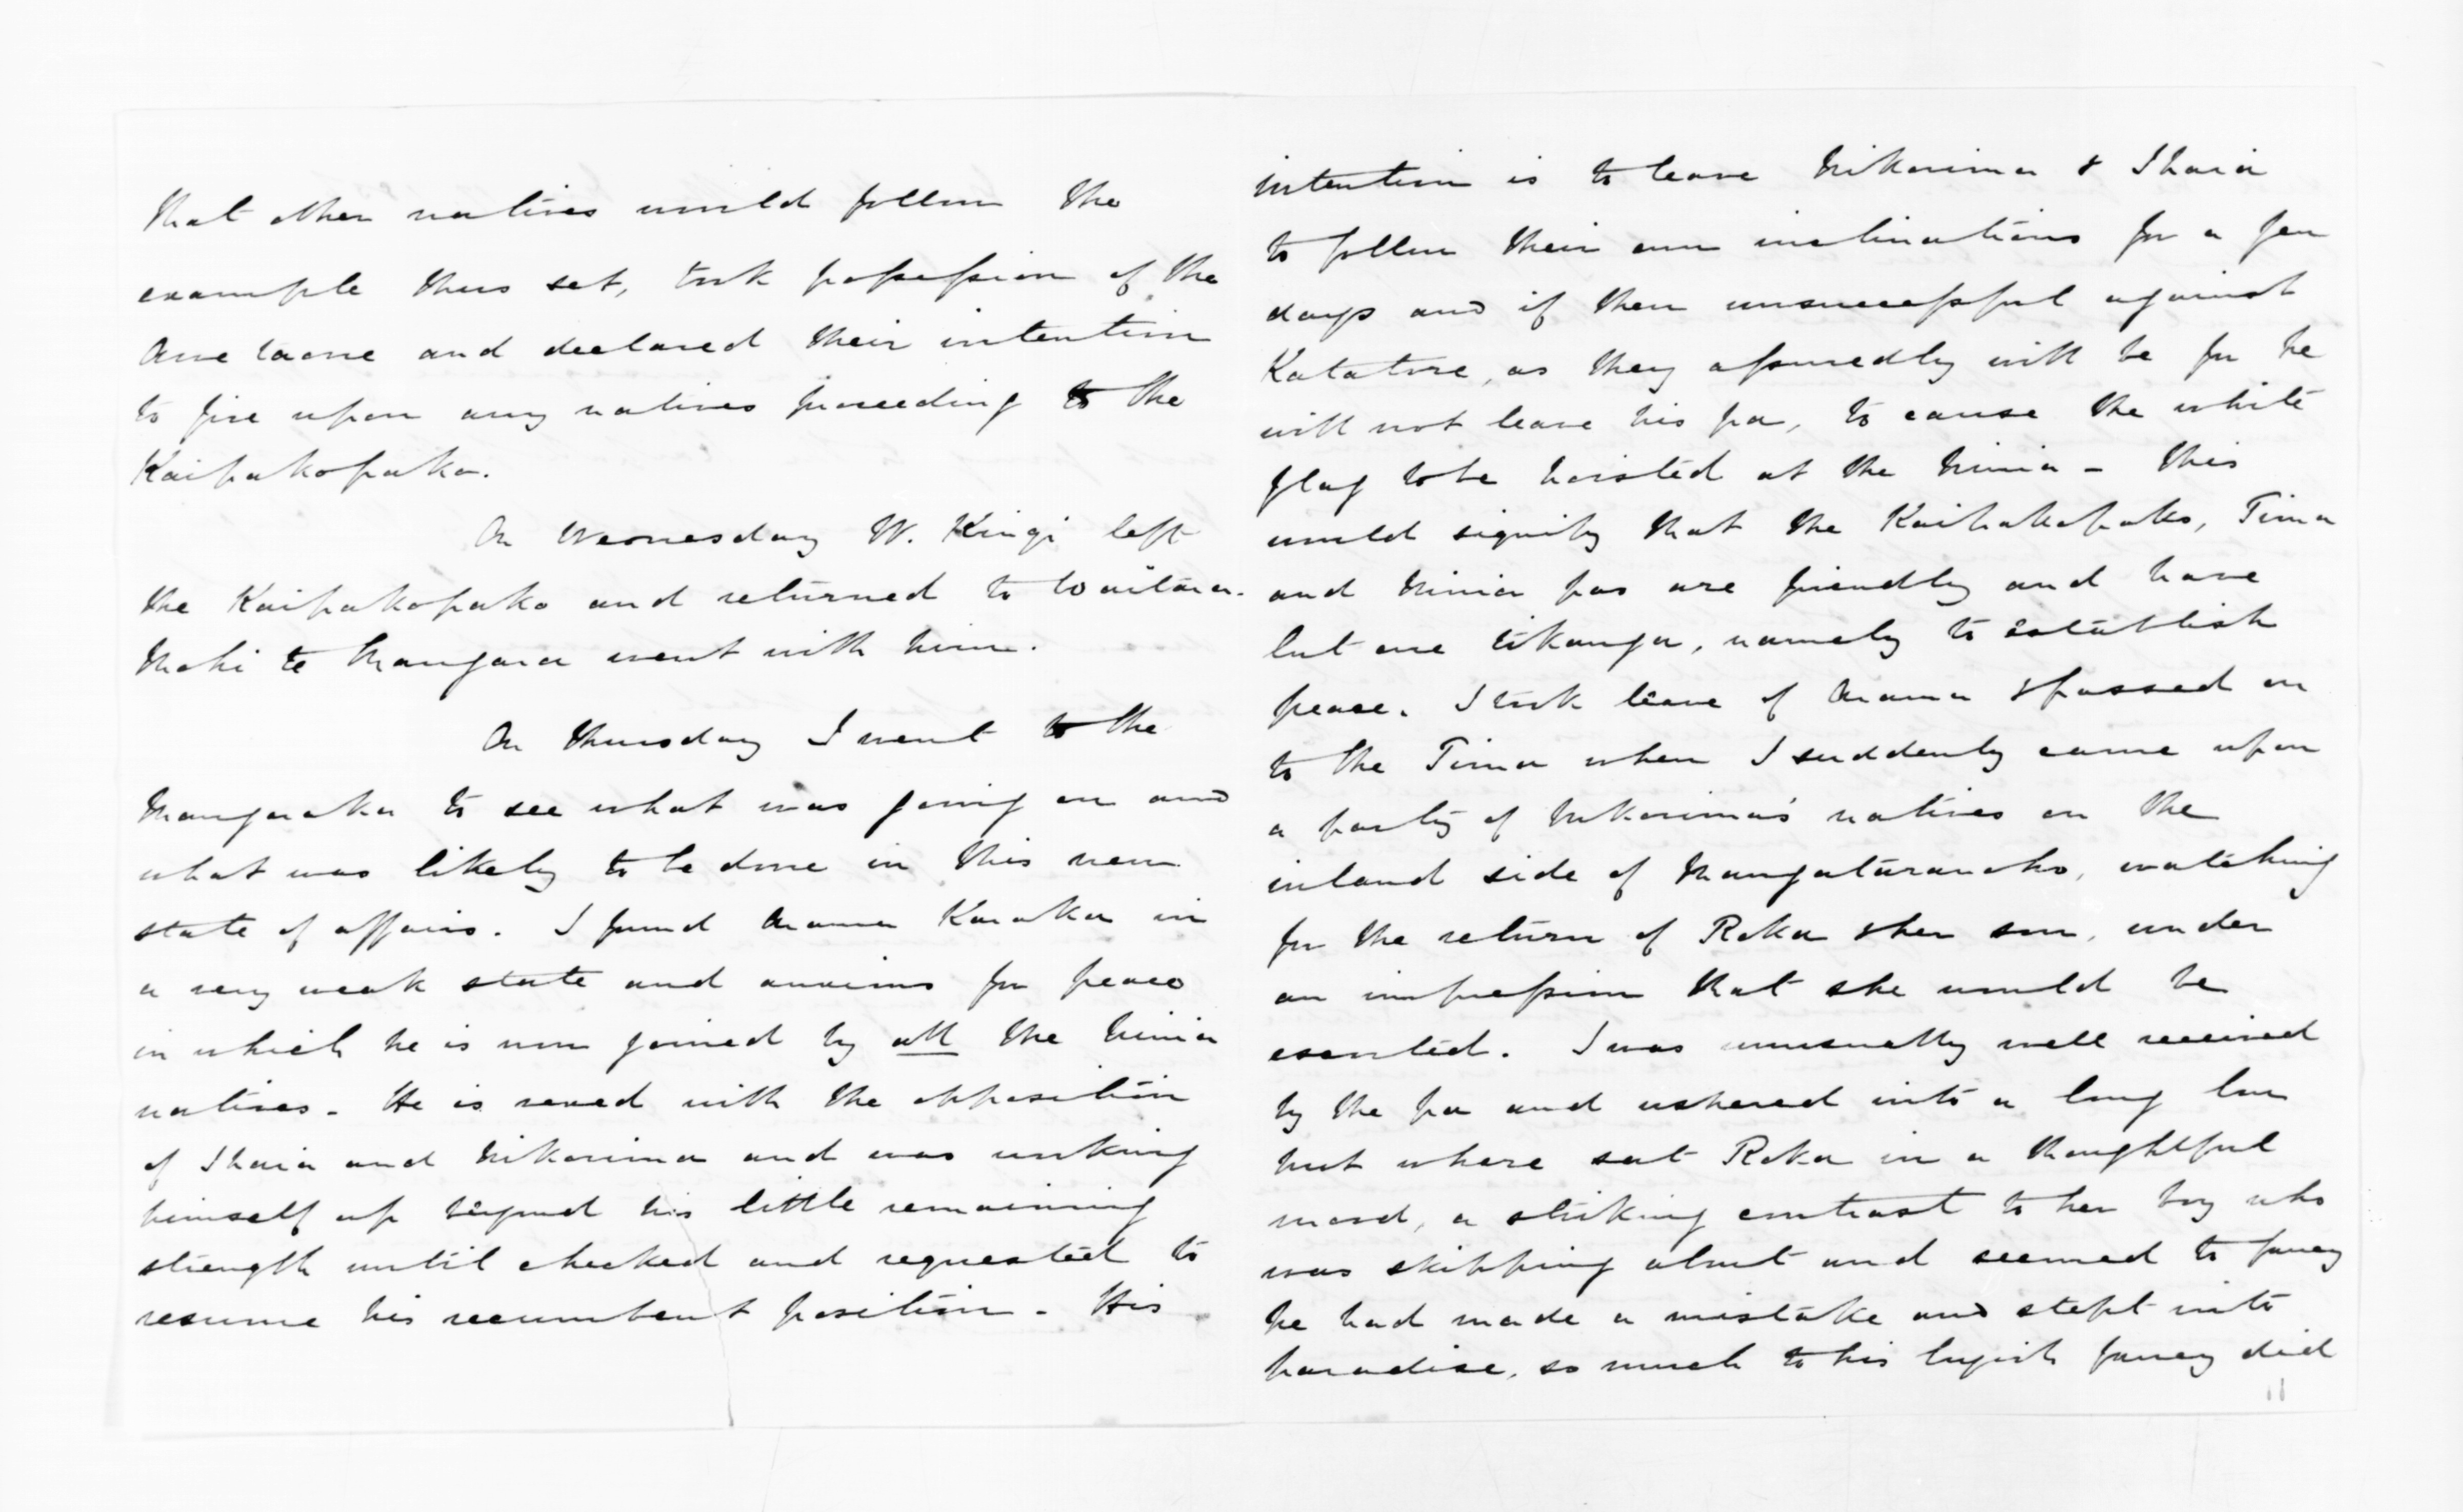 that other natives would follow the
example thus set, took possession of the
and declared their intention
to fire upon any natives proceeding to the
Kaipakopako.
On Wednesday W. Kingi left
the Kaipakopako and returned to Waitara.
Mahi te Mangara went with him.
On Thursday I went to the
Mangaraka to see what was going on and
what was likely to be done in this new
state of affairs. I found Arama Karaka in
a very weak state and anxious for peace
in which he is now joined by all the Ninia
natives. He is vexed with the opposition
of Ihaia and Nikorima and was working
himself up beyond his little remaining
strength until checked and requested to
resume his recumbent position. His
intention is to leave Nikorima & Ihaia
to follow their own inclinations for a few
days and if then unsuccessful against
Katatore, as they assuredly will be for he
will not leave his pa, to cause the white
flag to be hoisted at the Ninia - this
would signify that the Kaipakopako, Tima
and Ninia pas are friendly and have
but one tikanga, namely to establish
peace. I took leave of Arama & passed on
to the Tima when I suddenly came upon
a party of Nikorima's natives on the
inland side of watching
for the return of Roka & her son, under
an impression that she would be
escorted. I was unusually well received
by the pa and ushered into a long low
hut where sat Roka in a thoughtful
mood, a striking contrast to her boy who
was skipping about and seemed to fancy
he had made a mistake and stept into
paradise, so much to his boyish fancy did
11